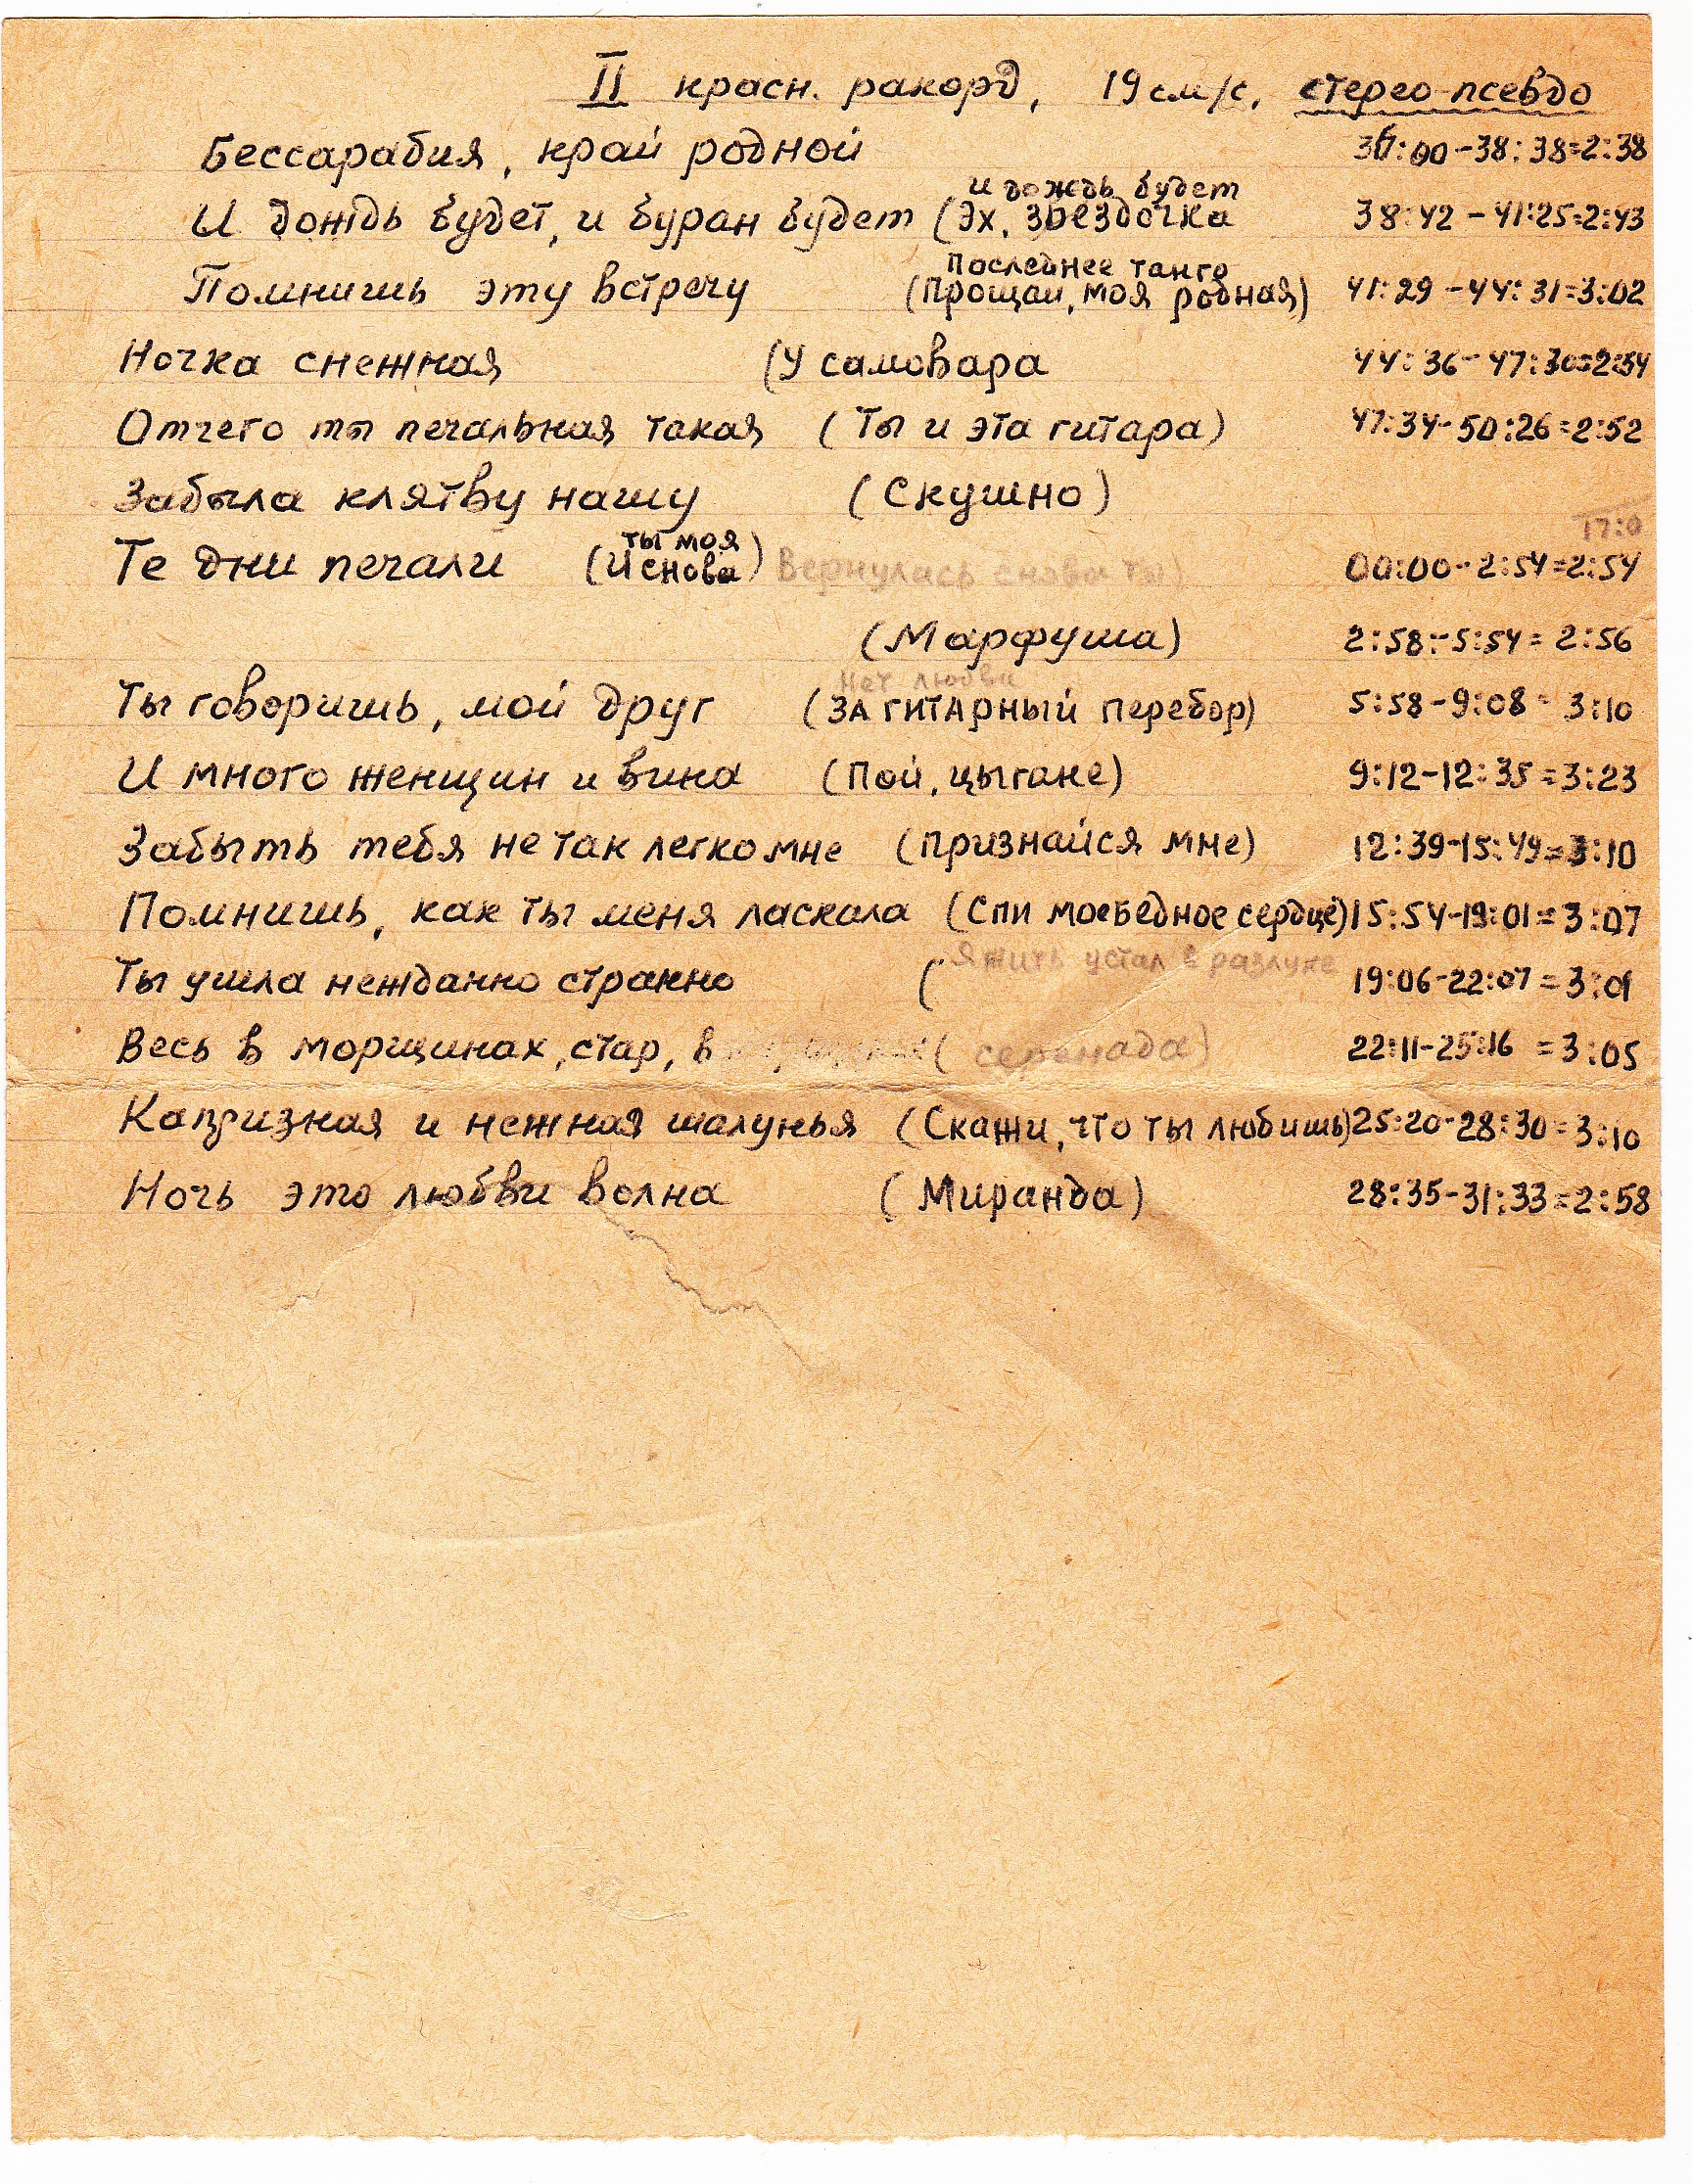 II красн. ракорд, 19 см/с, стерео-псевдо
Бессарабия, край родной 36:00-38:38=2:38
и дождь будет
И дождь будет, и буран будет (Эх, звездочка 38:42-41:25=2:43
последнее танго
Помнишь эту встречу (прощай, моя родная) 41:29-44:31=3:02
Ночка снежная (У самовара 44:36-47:30=2:54
Отчего ты печальная такая (Ты и эта гитара) 47:34-50:26=2:52
Забыла клятву нашу (Скушно)
17:0
ты моя
Те дни печали (И снова) Вернулась снова ты) 00:00-2:54=2:54
(Марфуша) 2:58-5:54=2:56
Нет любви
Ты говоришь, мой друг (ЗА ГИТАРНЫЙ перебор) 5:58-9:08=3:10
И много женщин и вина (Пой, цыгане) 9:12-12:35=3:23
Забыть тебя не так легко мне (признайся мне) 12:39-15:49=3:10
Помнишь, как ты меня ласкала (Спи мое бедное сердце) 15:54-19:01=3:07
Я жить устал в разлуке
Ты ушла нежданно странно ( 19:06-22:07=3:01
Весь в морщинах, стар, в (серенада) 22:11-25:16=3:05
Капризная и нежная шалунья (Скажи, что ты любишь) 25:20-28:30=3:10
Ночь это любви волна (Миранда) 28:35-31:33=2:58